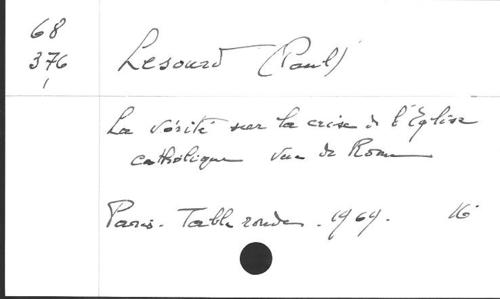 68
376
1
Lesourd (Paul)
La vérité sur la crise de l'Église
catholique vue de Rome
Paris. Table ronde. 1969. 16°